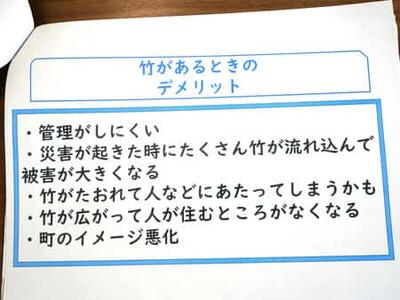 竹があるときの
デメリット
・管理がしにくい
・災害が起きた時にたくさん竹が流れ込んで
被害が大きくなる
・竹がたおれて人などにあたってしまうかも
・竹が広がって人が住むところがなくなる
・町のイメージ悪化